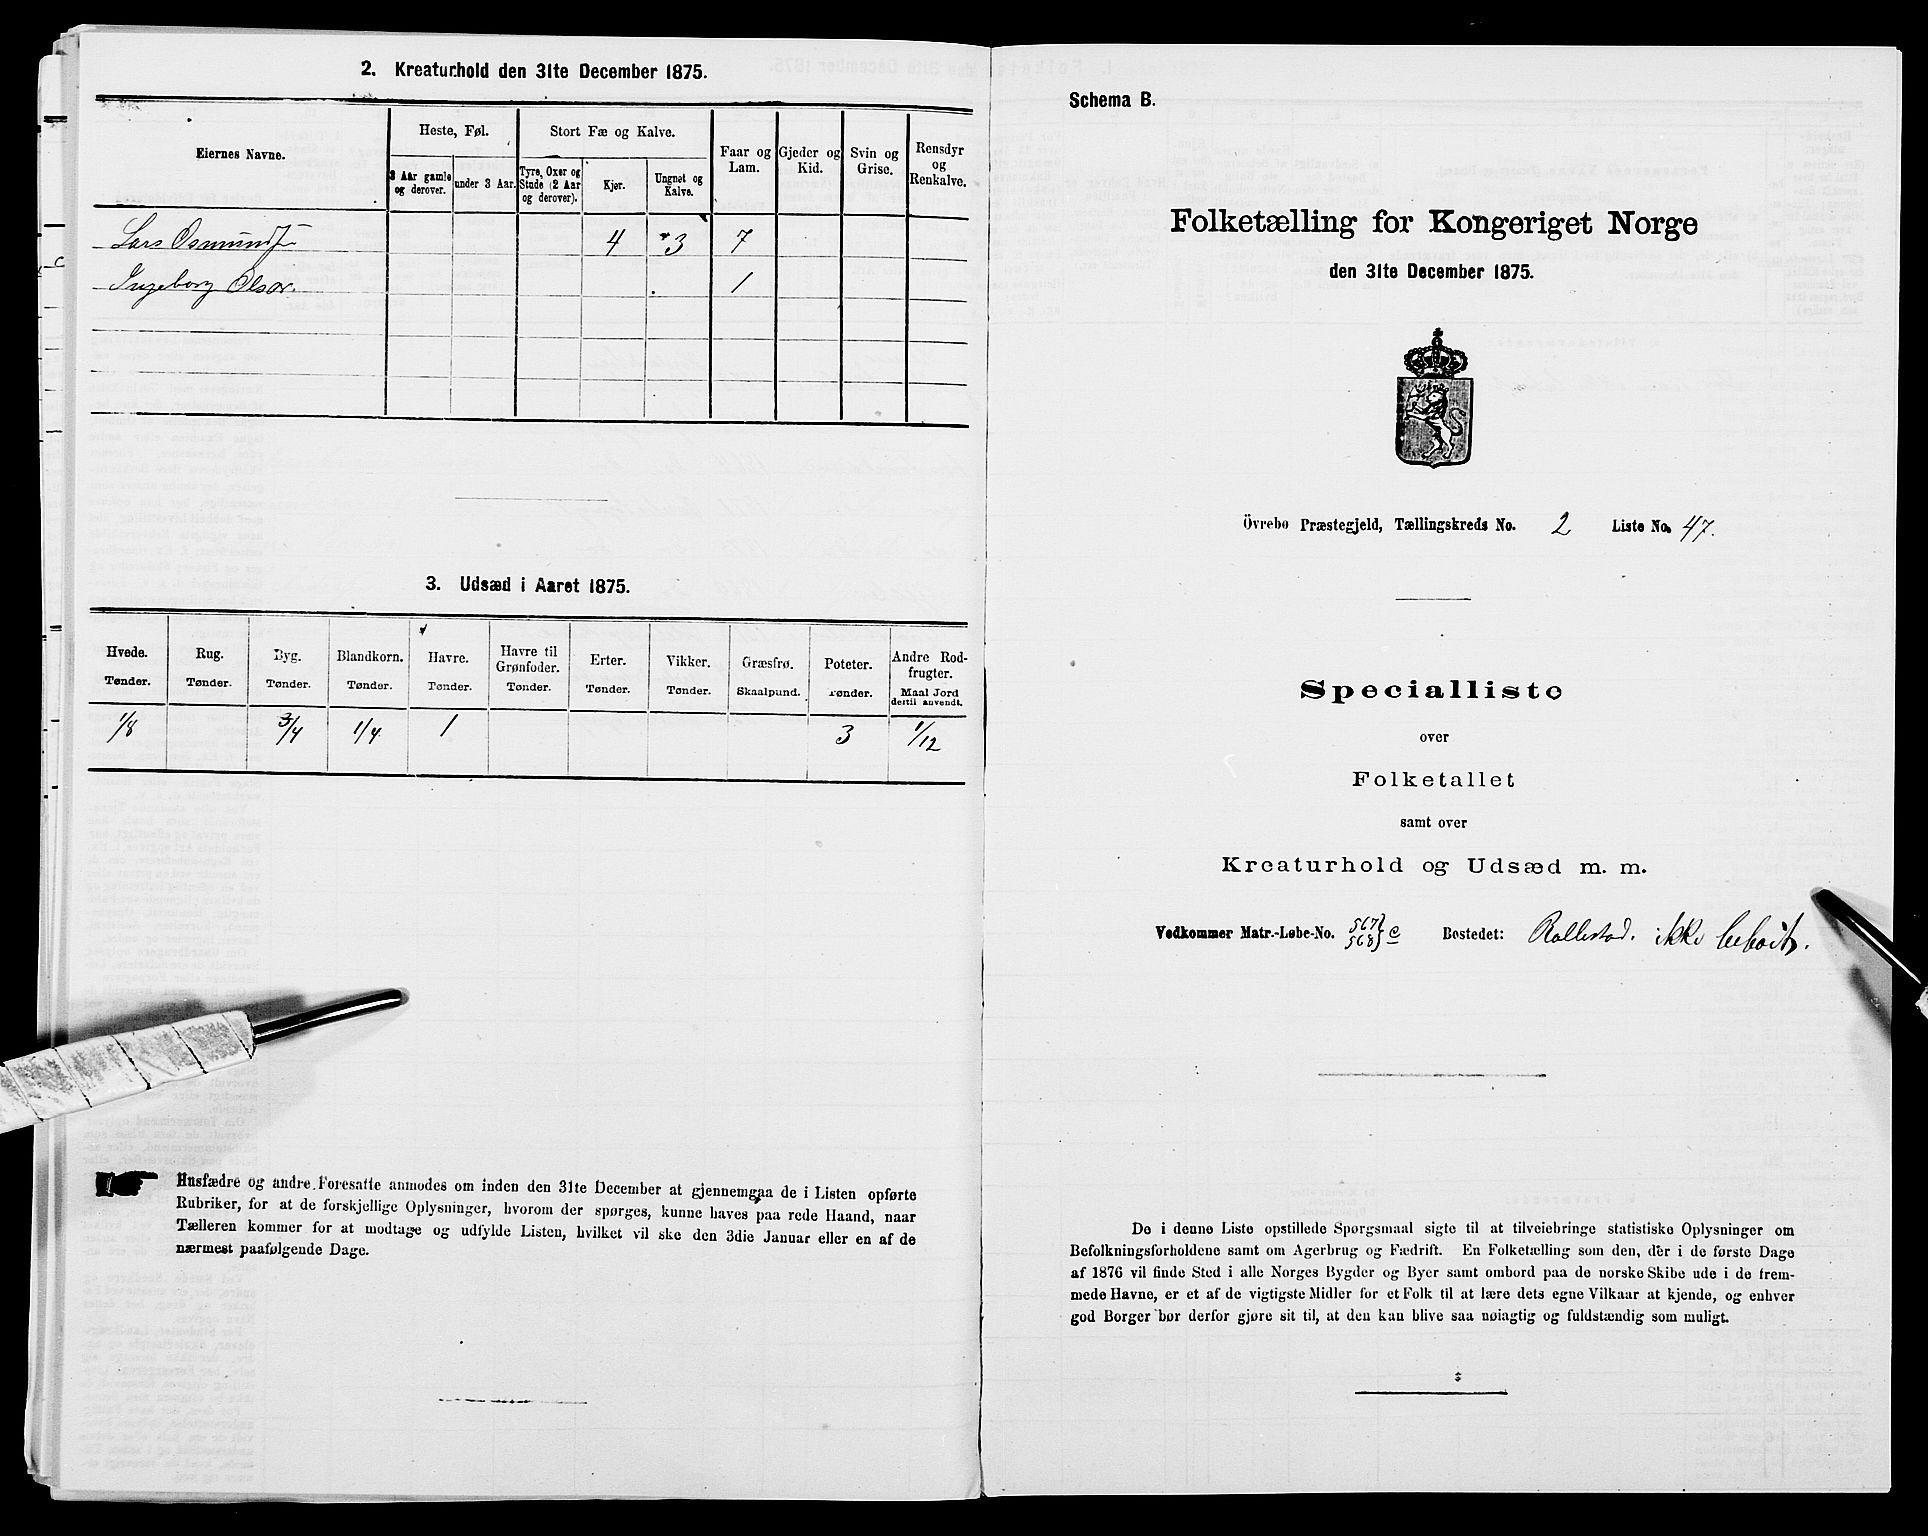 2. Kreaturhold den 31te December 1875.
Eiernes Navne.
Heste, Føl.
Stort Fæ og Kalve.
Faar og Lam.
Gjeder og Kid.
Svin og Grise.
Rensdyr og Renkalve.
3 Aar gamle og derover.
under 3 Aar.
Tyre, Oxer og Stude (2 Aar og derover).
Kjør.
Ungnøt og Kalve.
Lars Osmunds. 4 3 7
Ingeborg Olsdr. 1
3. Udsæd i Aaret 1875.
Hvede. Rug. Byg. Blandkorn. Havre. Havre til Grønfoder. Erter. Vikker. Græsfrø. Poteter. Andre Rodfrugter.
Tønder. Tønder. Tønder. Tønder. Tønder. Tønder. Tønder. Tønder. Skaalpund. Tønder. Maal Jord dertil anvendt.
1/8 3/4 1/4 1 3 1/12
Husfædre og andre Foresatte anmodes om inden den 31te December at gjennemgaa de i Listen opførte
Rubriker, for at de forskjellige Oplysninger, hvorom der spørges, kunne haves paa rede Haand, naar
Tælleren kommer for at modtage og udfylde Listen, hvilket vil ske den 3die Januar eller en af de
nærmest paafølgende Dage.
Schema B.
Folketælling for Kongeriget Norge
den 31te December 1875.
Övrebo Præstegjeld, Tællingskreds No. 2 Liste No. 47.
Specialliste
over
Folketallet
samt over
Kreaturhold og Udsæd m. m.
Vedkommer Matr.-Løbe-No. 567 568 } c Bostedet: Rollestad. ikke beboit.
De i denne Liste opstillede Spørgsmaal sigte til at tilveiebringe statistiske Oplysninger om
Befolkningsforholdene samt om Agerbrug og Fædrift. En Folketælling som den, der i de første Dage
af 1876 vil finde Sted i alle Norges Bygder og Byer samt ombord paa de norske Skibe ude i de frem-
mede Havne, er et af de vigtigste Midler for et Folk til at lære dets egne Vilkaar at kjende, og enhver
god Borger bør derfor gjøre sit til, at den kan blive saa nøiagtig og fuldstændig som muligt.